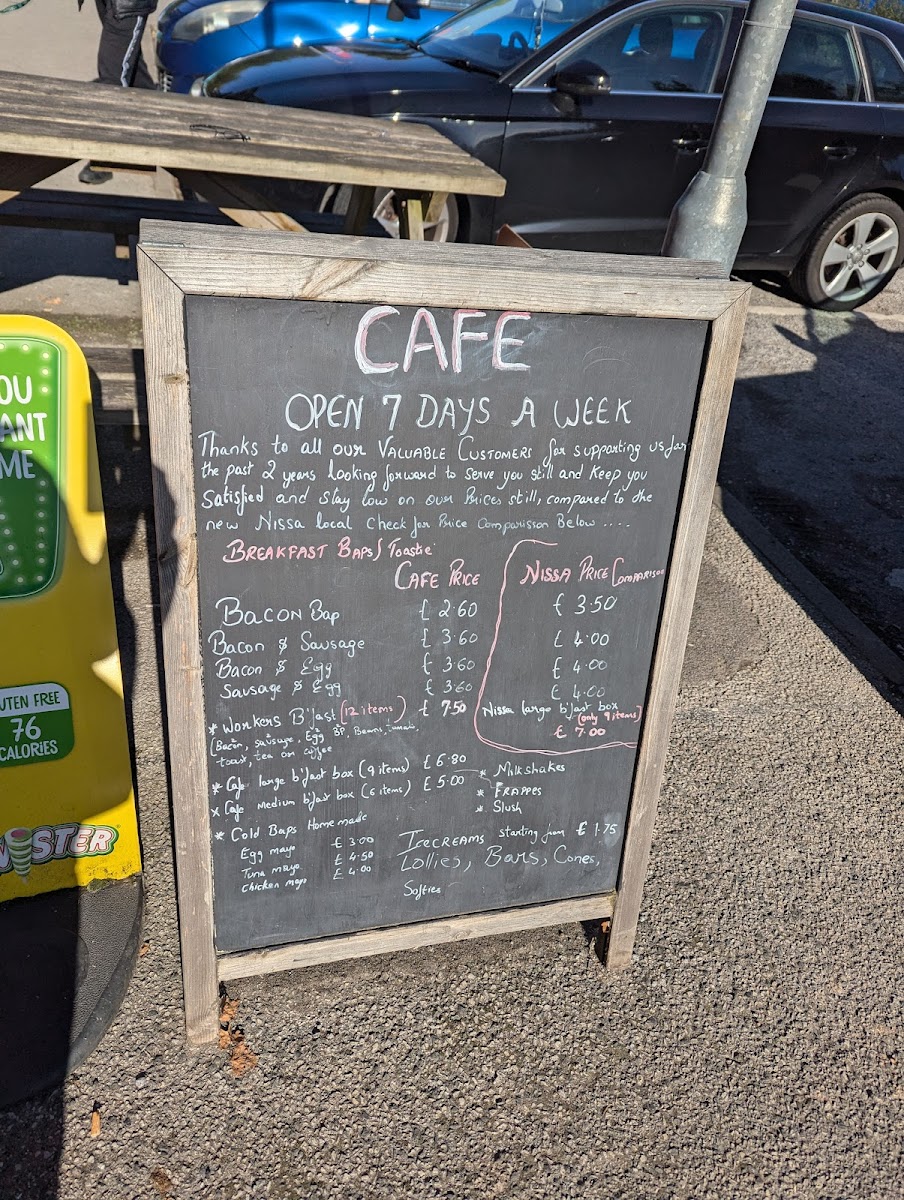 CAFE
OPEN 7 DAYS A WEEK
Thanks to all our VALUABLE CUSTOMERS for supporting us for
the past 2 years Looking forward to serve you still and Keep you
Satisfied and stay low on our Prices still, compared to the
new Nissa local Check for Price Comparisson Below ....
BREAKFAST BAPS/Toastie
CAFE PRICE NISSA PRICE COMPARISON
BACON Bap £ 2.60 £ 3.50
Bacon & Sausage £ 3.60 £ 4.00
Bacon & Egg £ 3.60 £ 4.00
Sausage & Egg £ 3.60 £ 4.00
* Workers B'fast (12 items) £ 7.50 Nissa large b'fast box
(only 9 items)
£ 7.00
toast, tea or coffee
* Cafe large b'fast box (9 items) £ 6.80
* Cafe Medium b'fast box (6 items) £ 5.00
* Milkshakes
* FRAPPES
* Slush
* Cold Baps Home made
Egg mayo £ 3.00
Tuna mayo £ 4.50
Chicken mayo £ 4.00
ICECREAMS starting from £ 1.75
Lollies, Bars, Cones,
Softies
OU
ANT
ME
UTEN FREE
76
CALORIES
STER